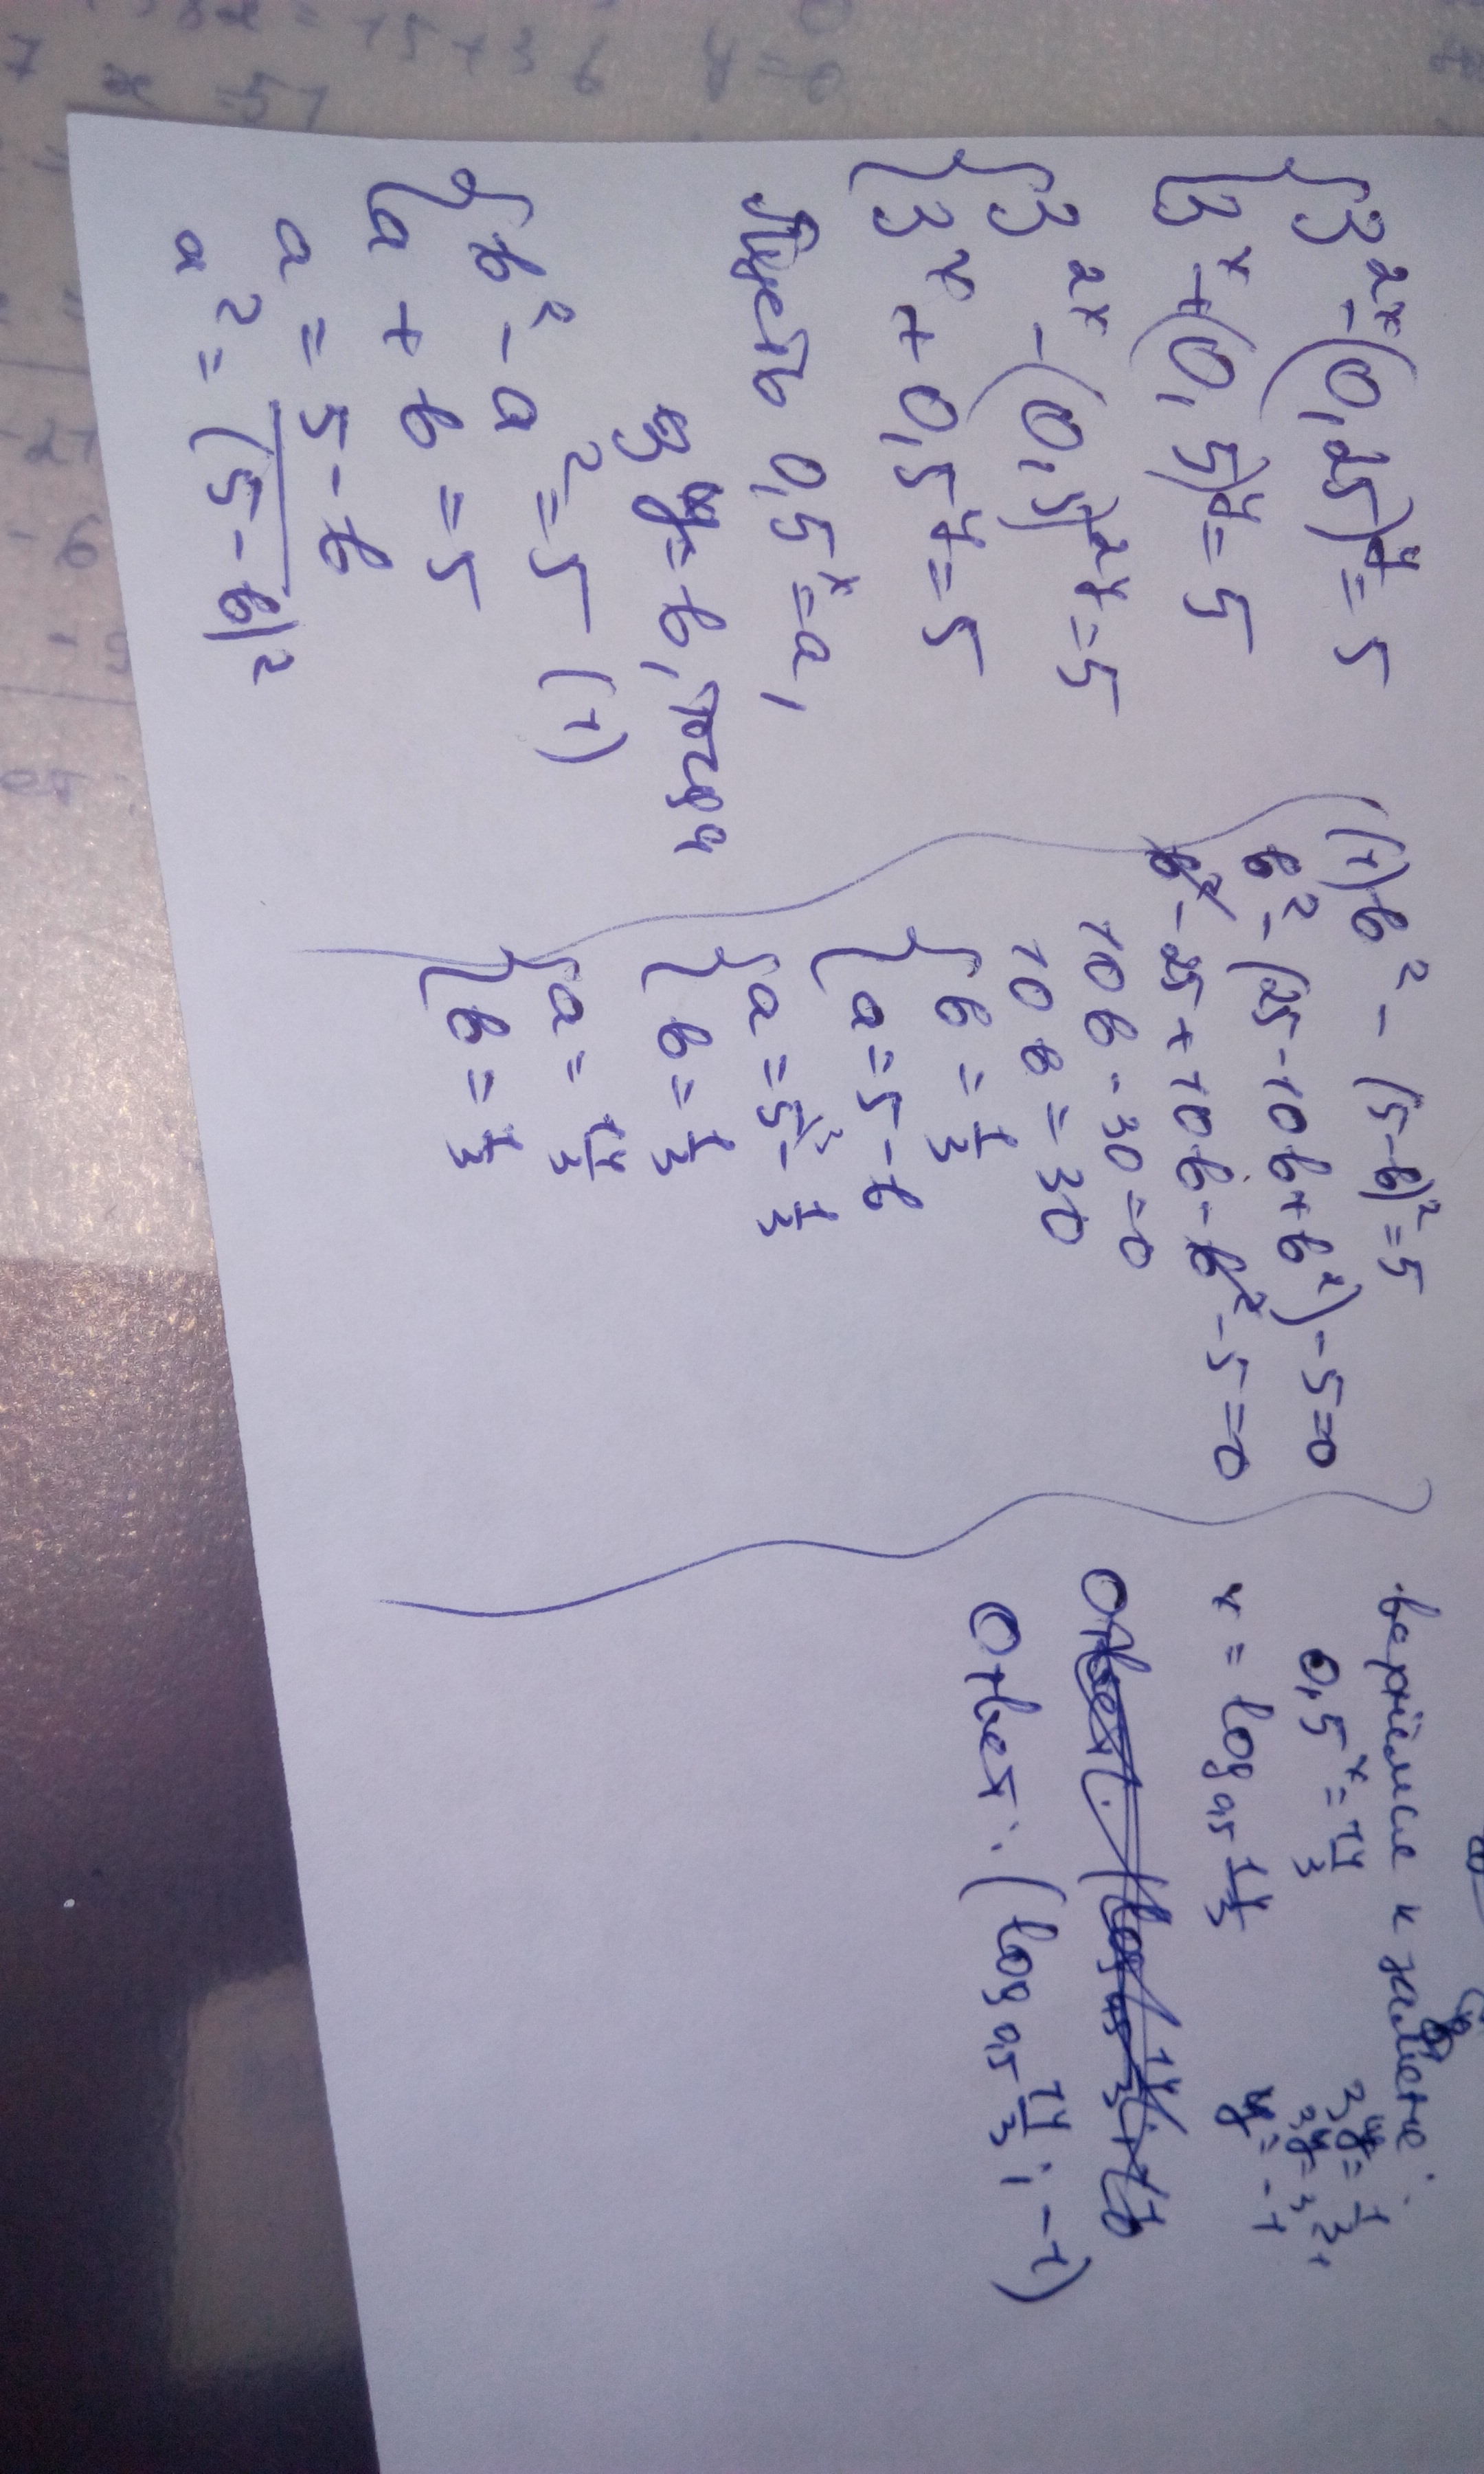 3^{2x} - (0,25)^y = 5
3^x + (0,5)^y = 5
3^{2x} - (0,5)^{2y} = 5
3^x + 0,5^y = 5
Пусть 0,5^x = a,
3^y = b, тогда
b^2 - a^2 = 5 (1)
a + b = 5
a = 5 - b
a^2 = (5 - b)^2
(1) b^2 - (5-b)^2 = 5
b^2 - (25 - 10b + b^2) - 5 = 0
b^2 - 25 + 10b - b^2 - 5 = 0
10b - 30 = 0
10b = 30
b = 1/3
a = 5 - b
a = 5 - 1/3
b = 1/3
a = 14/3
b = 1/3
вернёмся к замене:
0,5^x = 14/3
x = log_{0,5} 14/3
3^y = 1/3
3^y = 3^{-1}
y = -1
Ответ: (log_{0,5} 14/3; -1)
15 + 36
y = 0
51
-6